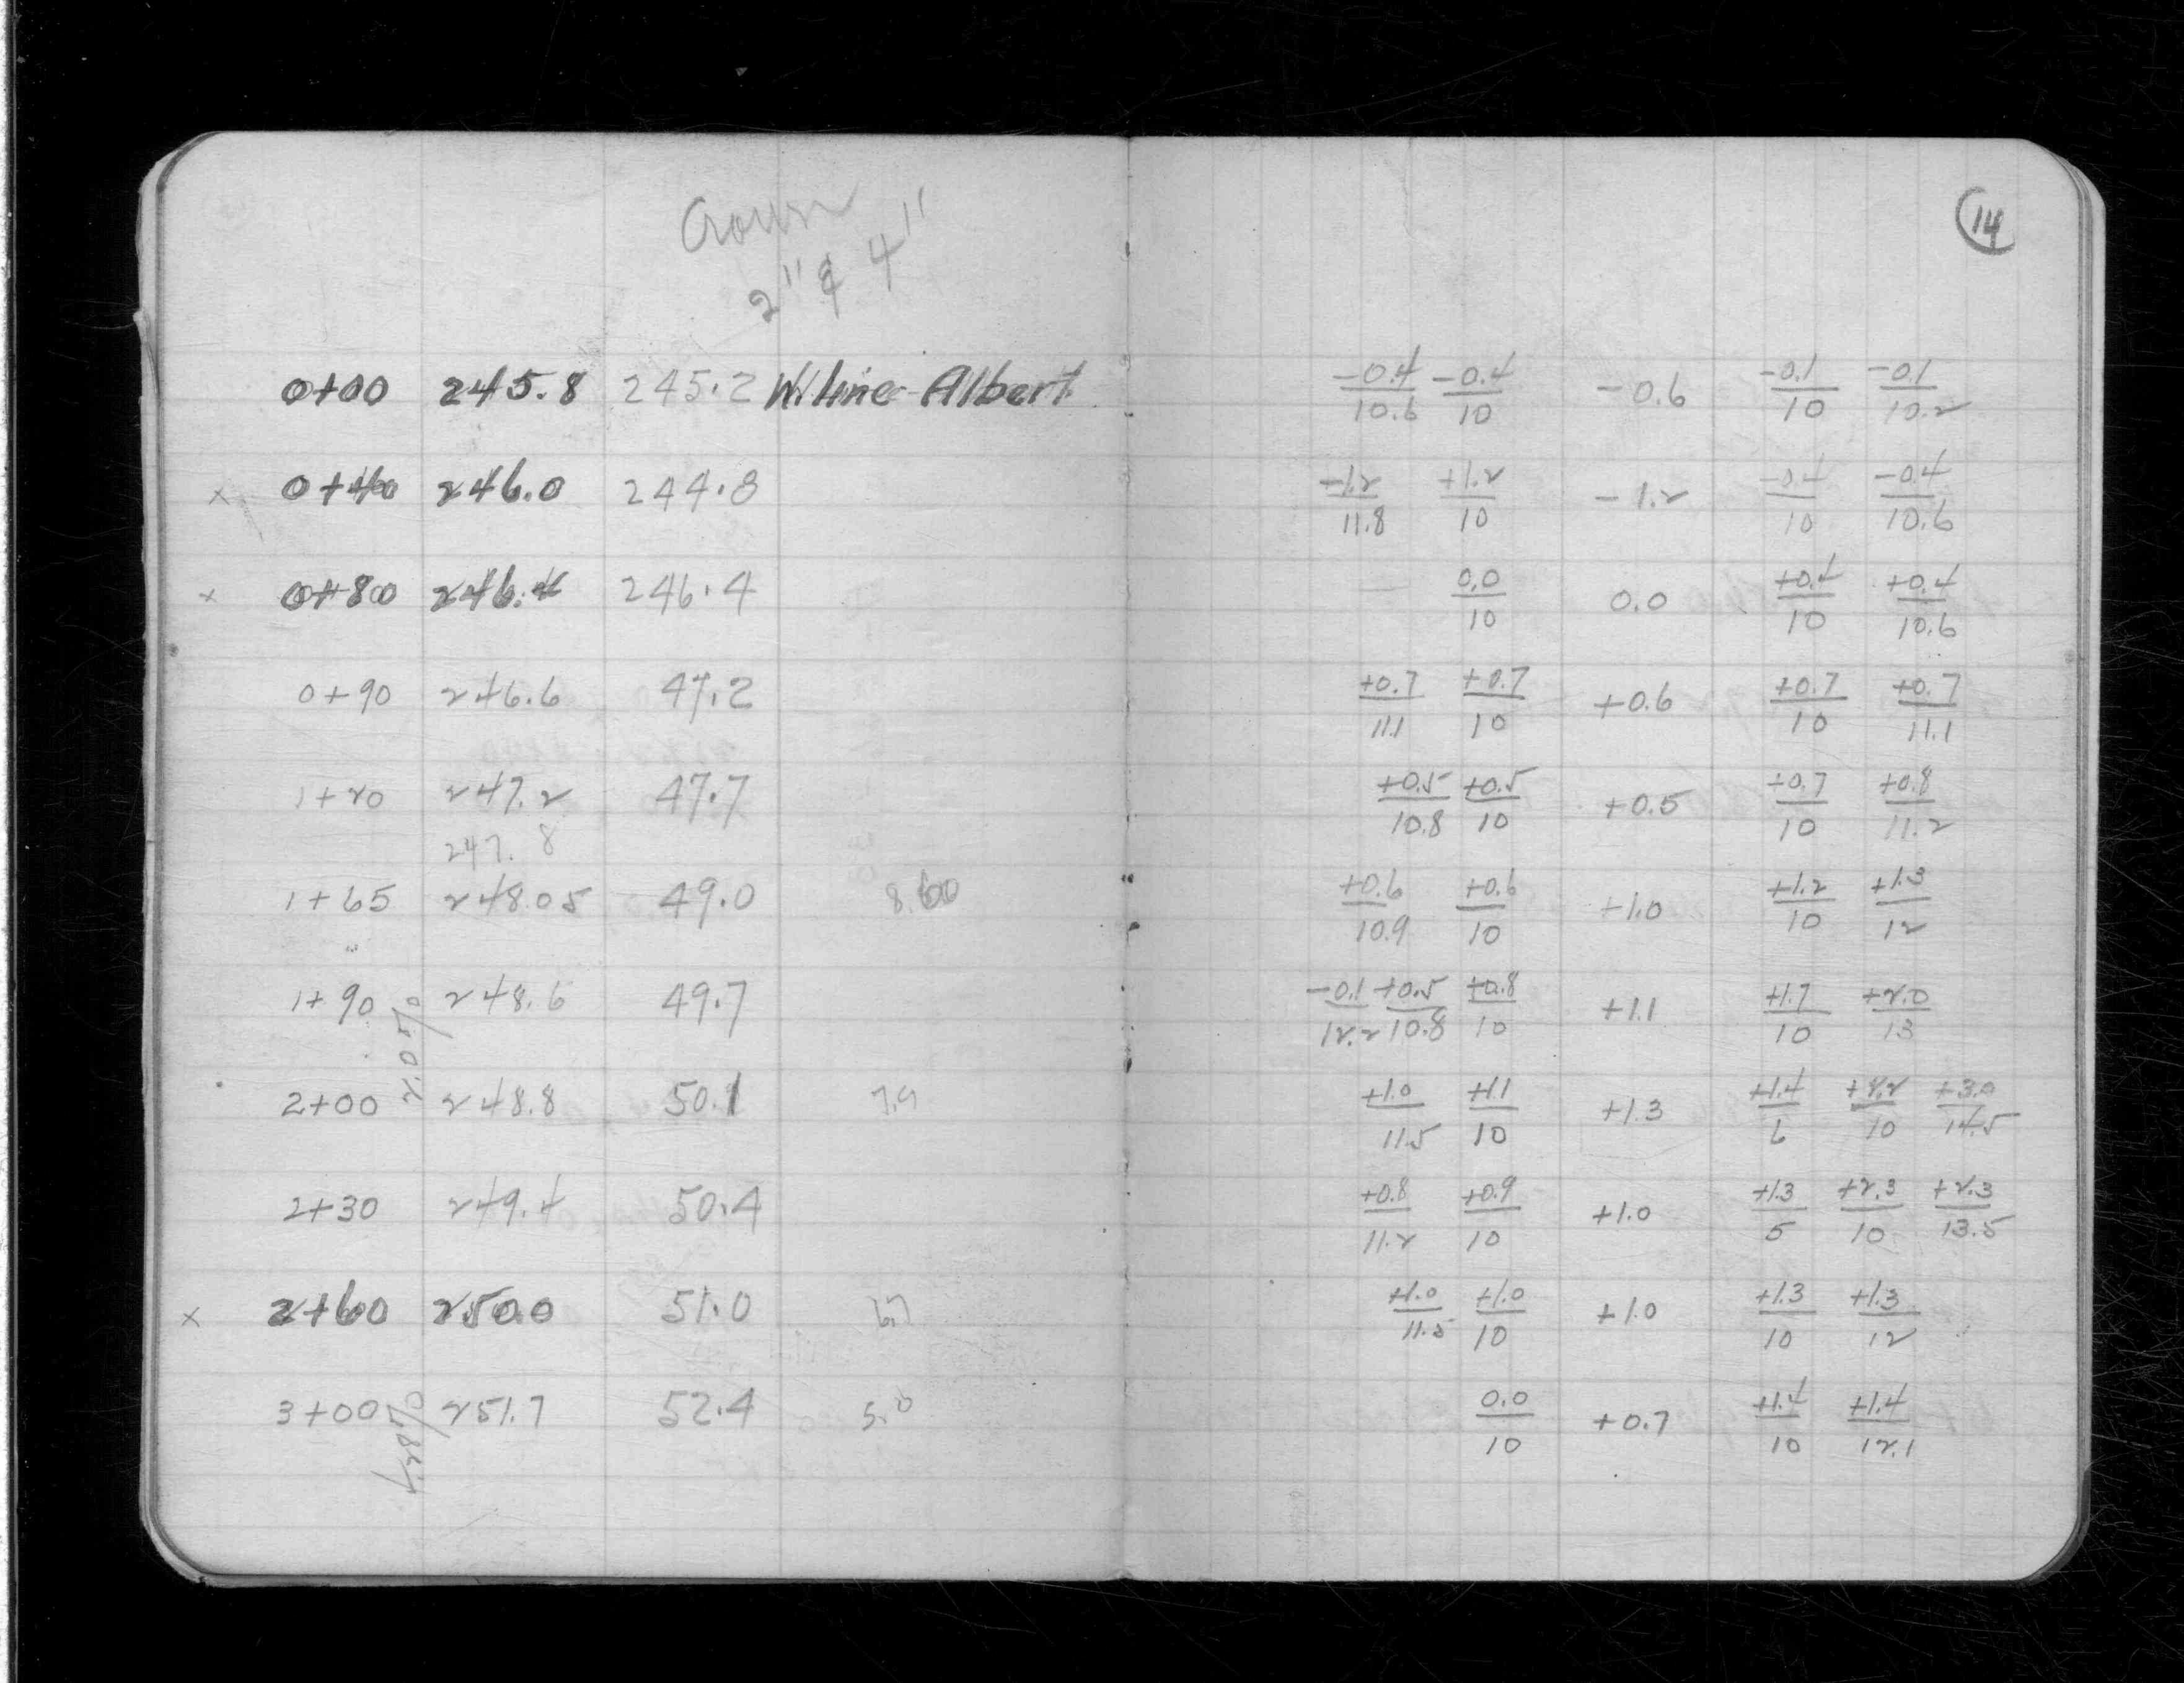 Crown
2" & 4"
14
0+00 245.8 245.2 W. line Albert -0.4/10.6 -0.4/10 -0.6 -0.1/10 -0.1/10.2
x 0+40 246.0 244.8 -1.2/11.8 +1.2/10 -1.2 -0.4/10 -0.4/10.6
x 0+80 246.4 246.4 — 0.0/10 0.0 +0.4/10 +0.4/10.6
0+90 246.6 47.2 +0.7/11.1 +0.7/10 +0.6 +0.7/10 +0.7/11.1
1+20 247.2 47.7 +0.5/10.8 +0.5/10 +0.5 +0.7/10 +0.8/11.2
247.8
1+65 248.05 49.0 8.60 +0.6/10.9 +0.6/10 +1.0 +1.2/10 +1.3/12
1+90 248.6 49.7 -0.1/12.2 +0.5/10.8 +0.8/10 +1.1 +1.7/10 +2.0/13
2.0%
2+00 248.8 50.1 7.9 +1.0/11.5 +1.1/10 +1.3 +1.4/6 +2.2/10 +3.0/14.5
2+30 249.4 50.4 +0.8/11.2 +0.9/10 +1.0 +1.3/5 +2.3/10 +2.3/13.5
x 2+60 250.0 51.0 6.7 +1.0/11.5 +1.0/10 +1.0 +1.3/10 +1.3/12
3+00 251.7 52.4 5.0 0.0/10 +0.7 +1.4/10 +1.4/12.1
4.28%